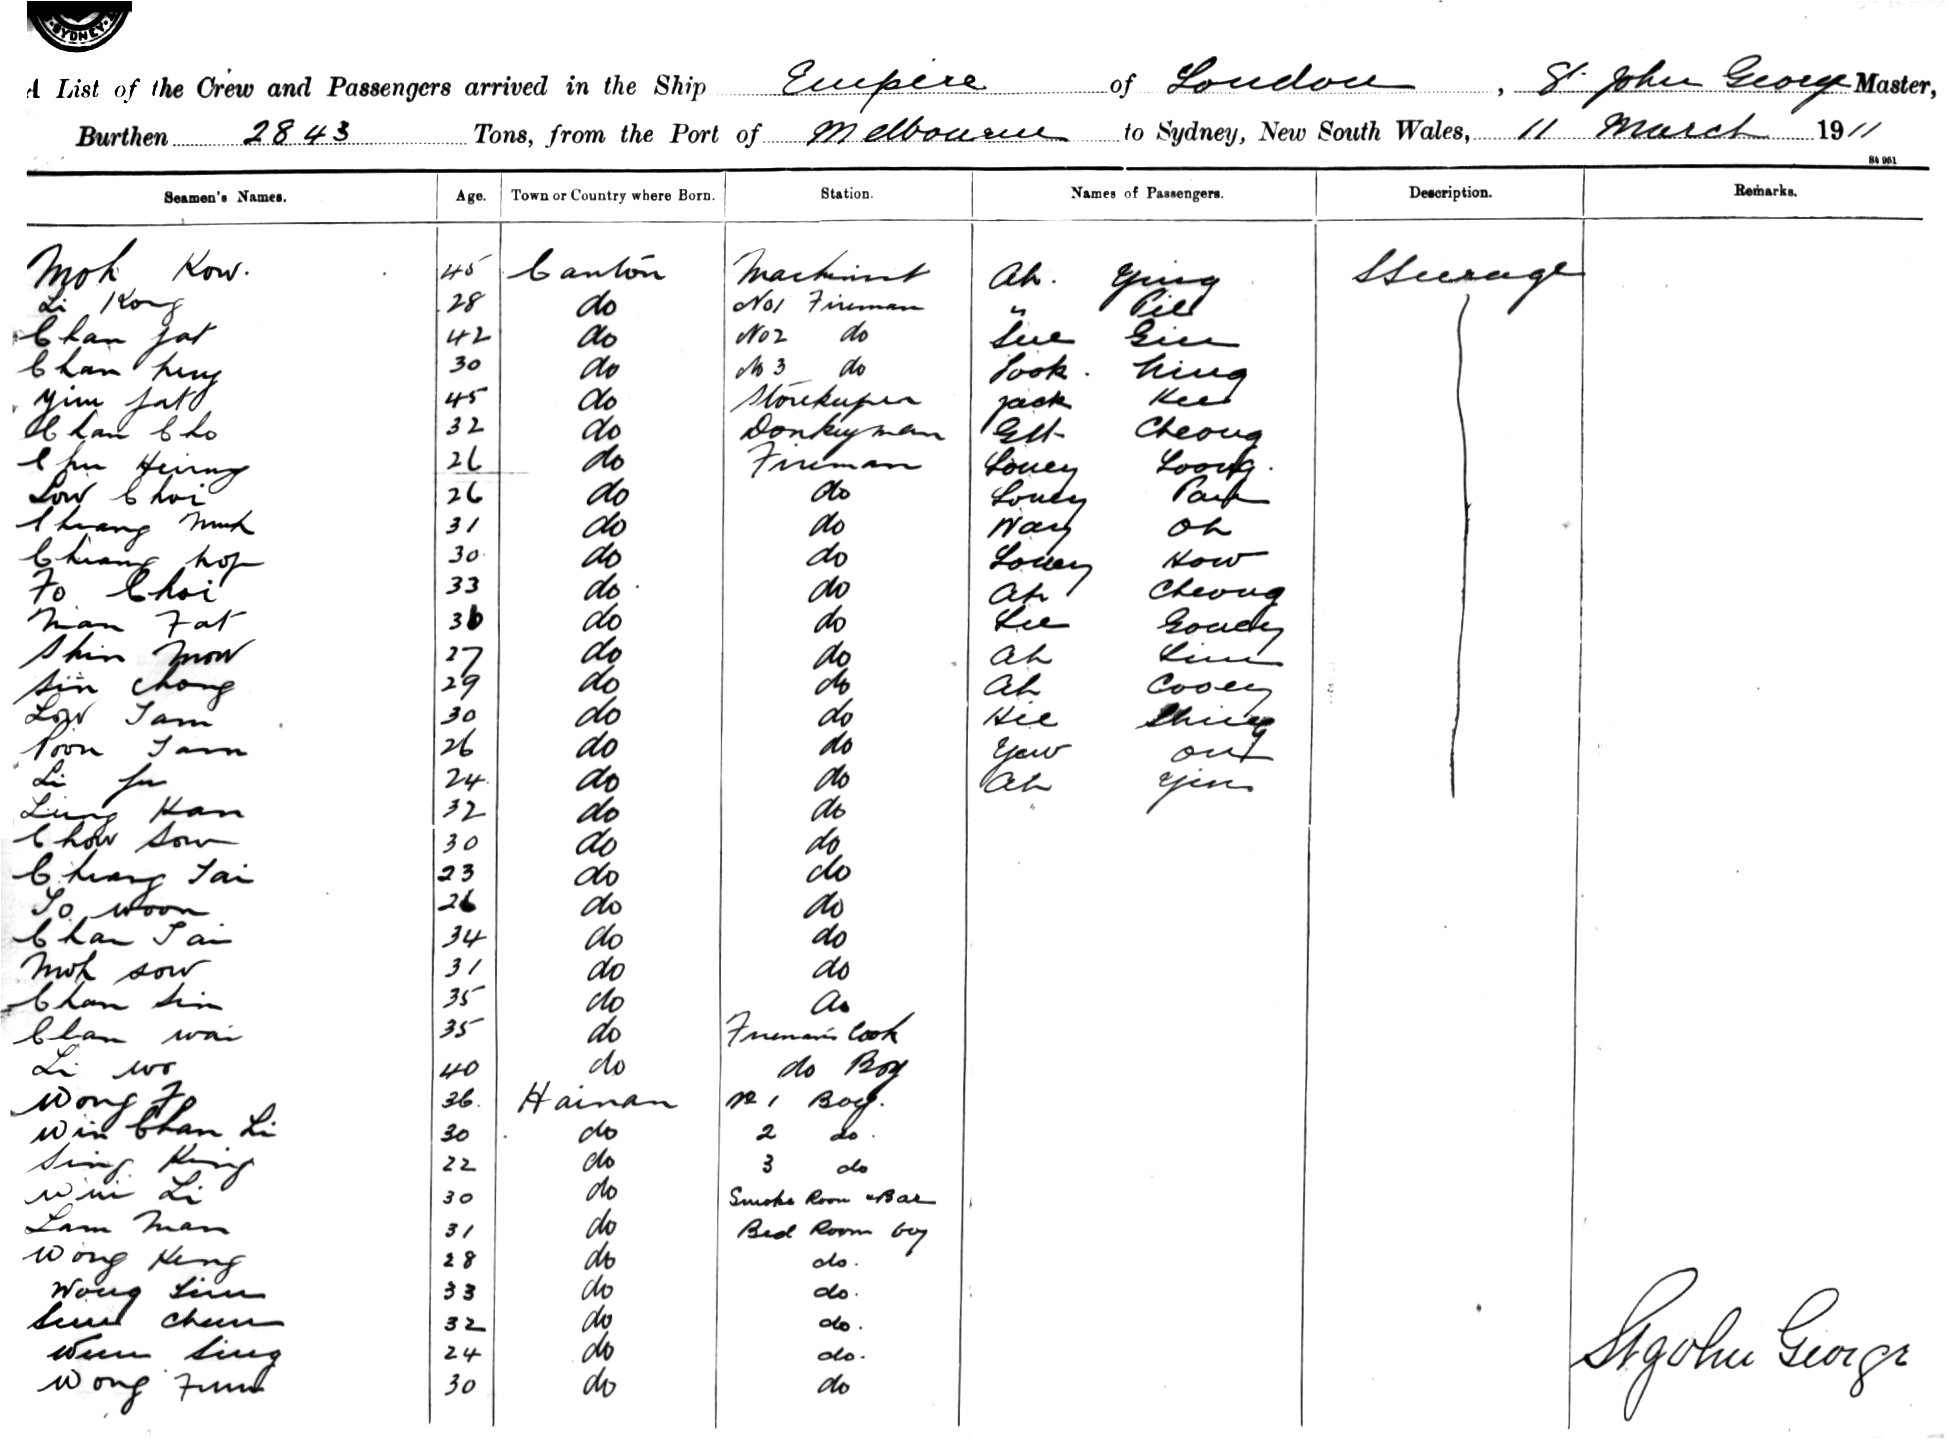 SYDNEY
A List of the Crew and Passengers arrived in the Ship Empire of London, St. John George Master,
Burthen 2843 Tons, from the Port of Melbourne to Sydney, New South Wales, 11 March 1911
St 961
Seamen's Names. Age. Town or Country where Born. Station. Names of Passengers. Description. Remarks.
Moh Kow. 45 Canton Machinist Ah. Ying Steerage
Li Kong 28 do No 1 Fireman " Pie
Chan fat 42 do No 2 do Sue Gin
Chan 30 do No 3 do Sook. Ning
Yim fat 45 do Storekeeper Jack Kee
Chan Cho 32 do Donkeyman Cheong
26 do Fireman Louey Loong.
Low Choi 26 do do Louey
Chuang 31 do do Way Oh
Chuang hop 30 do do Louey How
Fo Choi 33 do do Ah Cheong
Man Fat 36 do do Lee Gouey
Shin Mow 27 do do Ah Lim
Sin Chong 29 do do Ah Cooey
Low Tam 30 do do Hie Shing
Poon Tam 26 do do Yew
Li fu 24 do do Ah Yin
Lung Han 32 do do
Chow Sow 30 do do
Chuang Tai 23 do do
To woon 26 do do
Chan Tai 34 do do
Moh sow 31 do do
Chan Sin 35 do do
Chan wai 35 do Fireman's Cook
Li wo 40 do do Boy
Wong Fo 36. Hainan No 1 Boy.
Win Chan Li 30 do 2 do.
Sing King 22 do 3 do
Wui Li 30 do Smoke Room & Bar
Lam Man 31 do Bed Room boy
Wong Keng 28 do do.
Wong Lim 33 do do.
Chun 32 do do.
Wun Sing 24 do do.
Wong 30 do do
St John George